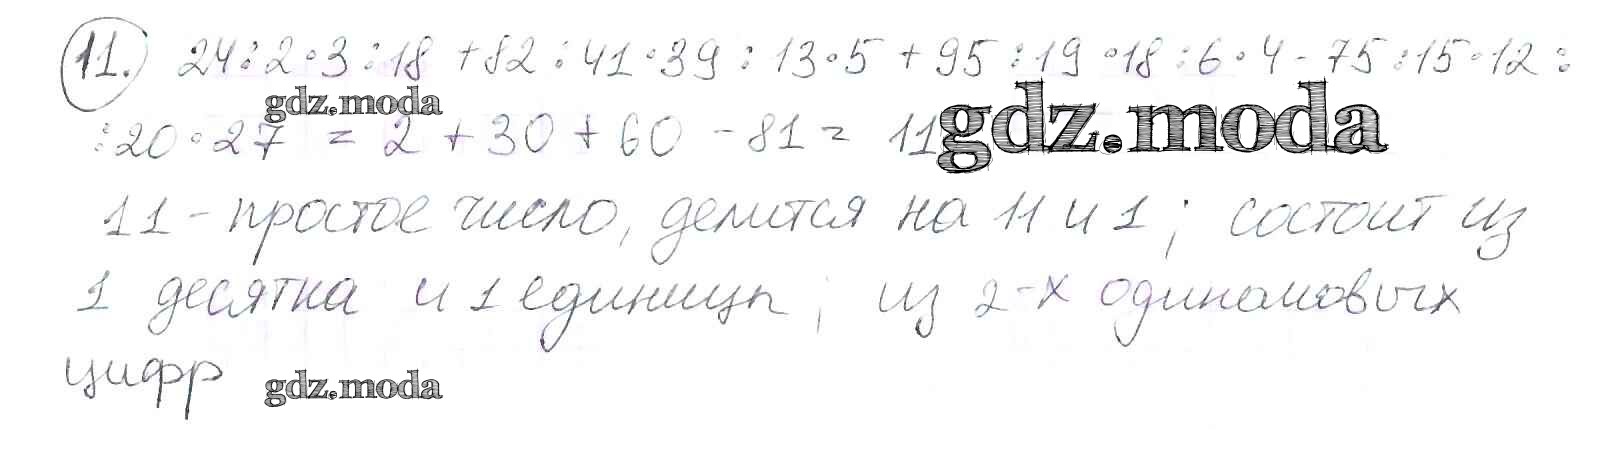 11. 24:2·3:18 + 82:41·39:13·5 + 95:19·18:6·4 - 75:15·12:
gdz.moda gdz.moda
:20·27 = 2 + 30 + 60 - 81 = 11
11 - простое число, делится на 11 и 1; состоит из
1 десятка и 1 единицы; из 2-х одинаковых
цифр gdz.moda